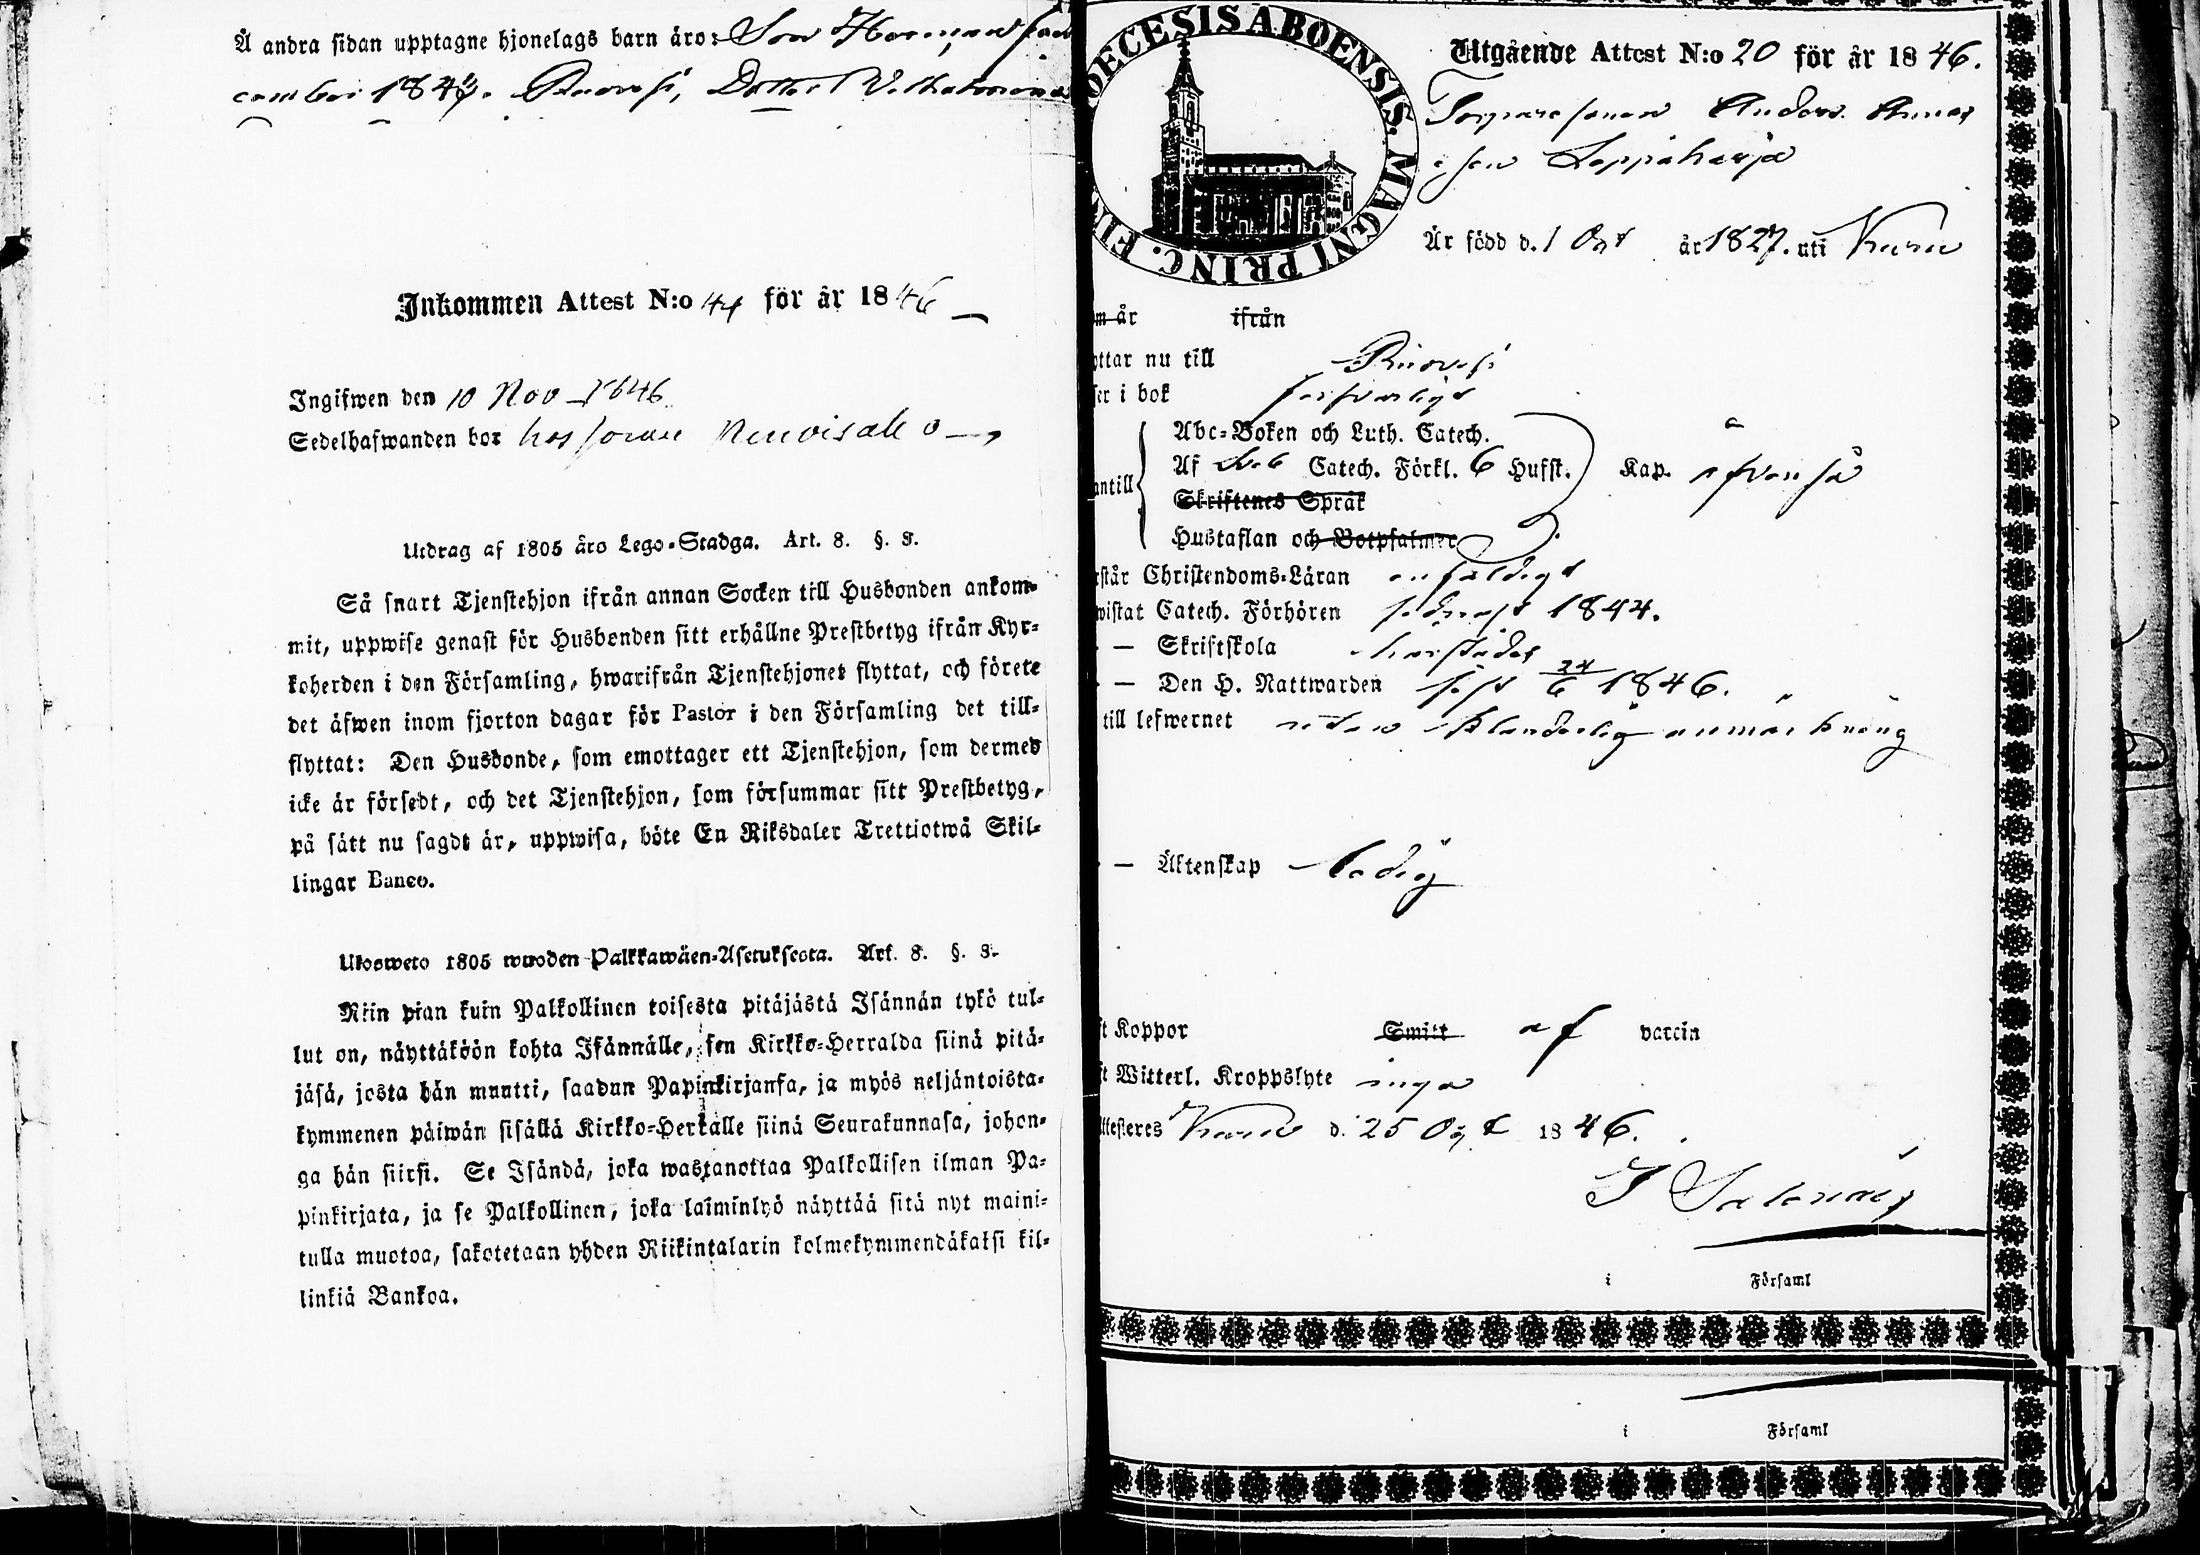 Å andra sidan upptagne hjonelags barn äro: Son Herman född
cember 1843. Ruovesi, Dotter Vilhelmina
Inkommen Attest N:o 44 för år 1846
Ingifwen den 10 Nov 1846
Sedelhafwanden bor hos
Utdrag af 1805 års Lego-Stadga. Art. 8. §. 3.
Så snart Tjenstehjon ifrån annan Socken till Husbonden ankom-
mit, uppwise genast för Husbonden sitt erhållne Prestbetyg ifrån Kyr-
koherden i den Församling, hwarifrån Tjenstehjonet flyttat, och förete
det äfwen inom fjorton dagar för Pastor i den Församling det till-
flyttat: Den Husbonde, som emottager ett Tjenstehjon, som dermed
icke är försedt, och det Tjenstehjon, som försummar sitt Prestbetyg,
på sätt nu sagdt är, uppwisa, böte En Riksdaler Trettiotwå Skil-
lingar Banco.
Ulosweto 1805 wuoden Palkkawäen-Asetuksesta. Art. 8. §. 3.
Niin pian kuin Palkollinen toisesta pitäjästä Isännän tykö tul-
lut on, näyttäköön kohta Isännälle, sen Kirkko-Herralda siinä pitä-
jäsä, josta hän muutti, saadun Papinkirjansa, ja myös neljäntoista-
kymmenen päiwän sisällä Kirkko-Herralle siinä Seurakunnasa, johon-
ga hän siirsi. Se Isändä, joka wastanottaa Palkollisen ilman Pa-
pinkirjata, ja se Palkollinen, joka laiminlyö näyttää sitä nyt maini-
tulla muotoa, sakotetaan yhden Riikintalarin kolmekymmendäkaksi kil-
linkiä Bankoa.
OECESIS ABOENSIS. MAGNI PRINC. FIN
Utgående Attest N:o 20 för år 1846.
Torparesonen Anders
son Leppäharja
Är född d. 1 Oct år 1827. uti Kuru
m år ifrån
ottar nu till Ruovesi
ser i bok försvarligt
Abc-Boken och Luth. Catech.
antill Af Sveb Catech. Förkl. 6 Hufst. Kap. äfvenså
Skriftenes Språk
Hustaflan och Botpsalmer
rstår Christendoms-Läran enfaldigt
wistat Catech. Förhören sednast 1844.
— Skriftskola härstädes
— Den H. Nattwarden sist 24/6 1846.
till lefwernet utan klanderlig anmärkning
— Äktenskap ledig
ft Koppor Smitt af vaccin
ft Witterl. Kroppslyte inga
Attesteres Kuru d. 25 Oct 1846.
i Församl
i Församl